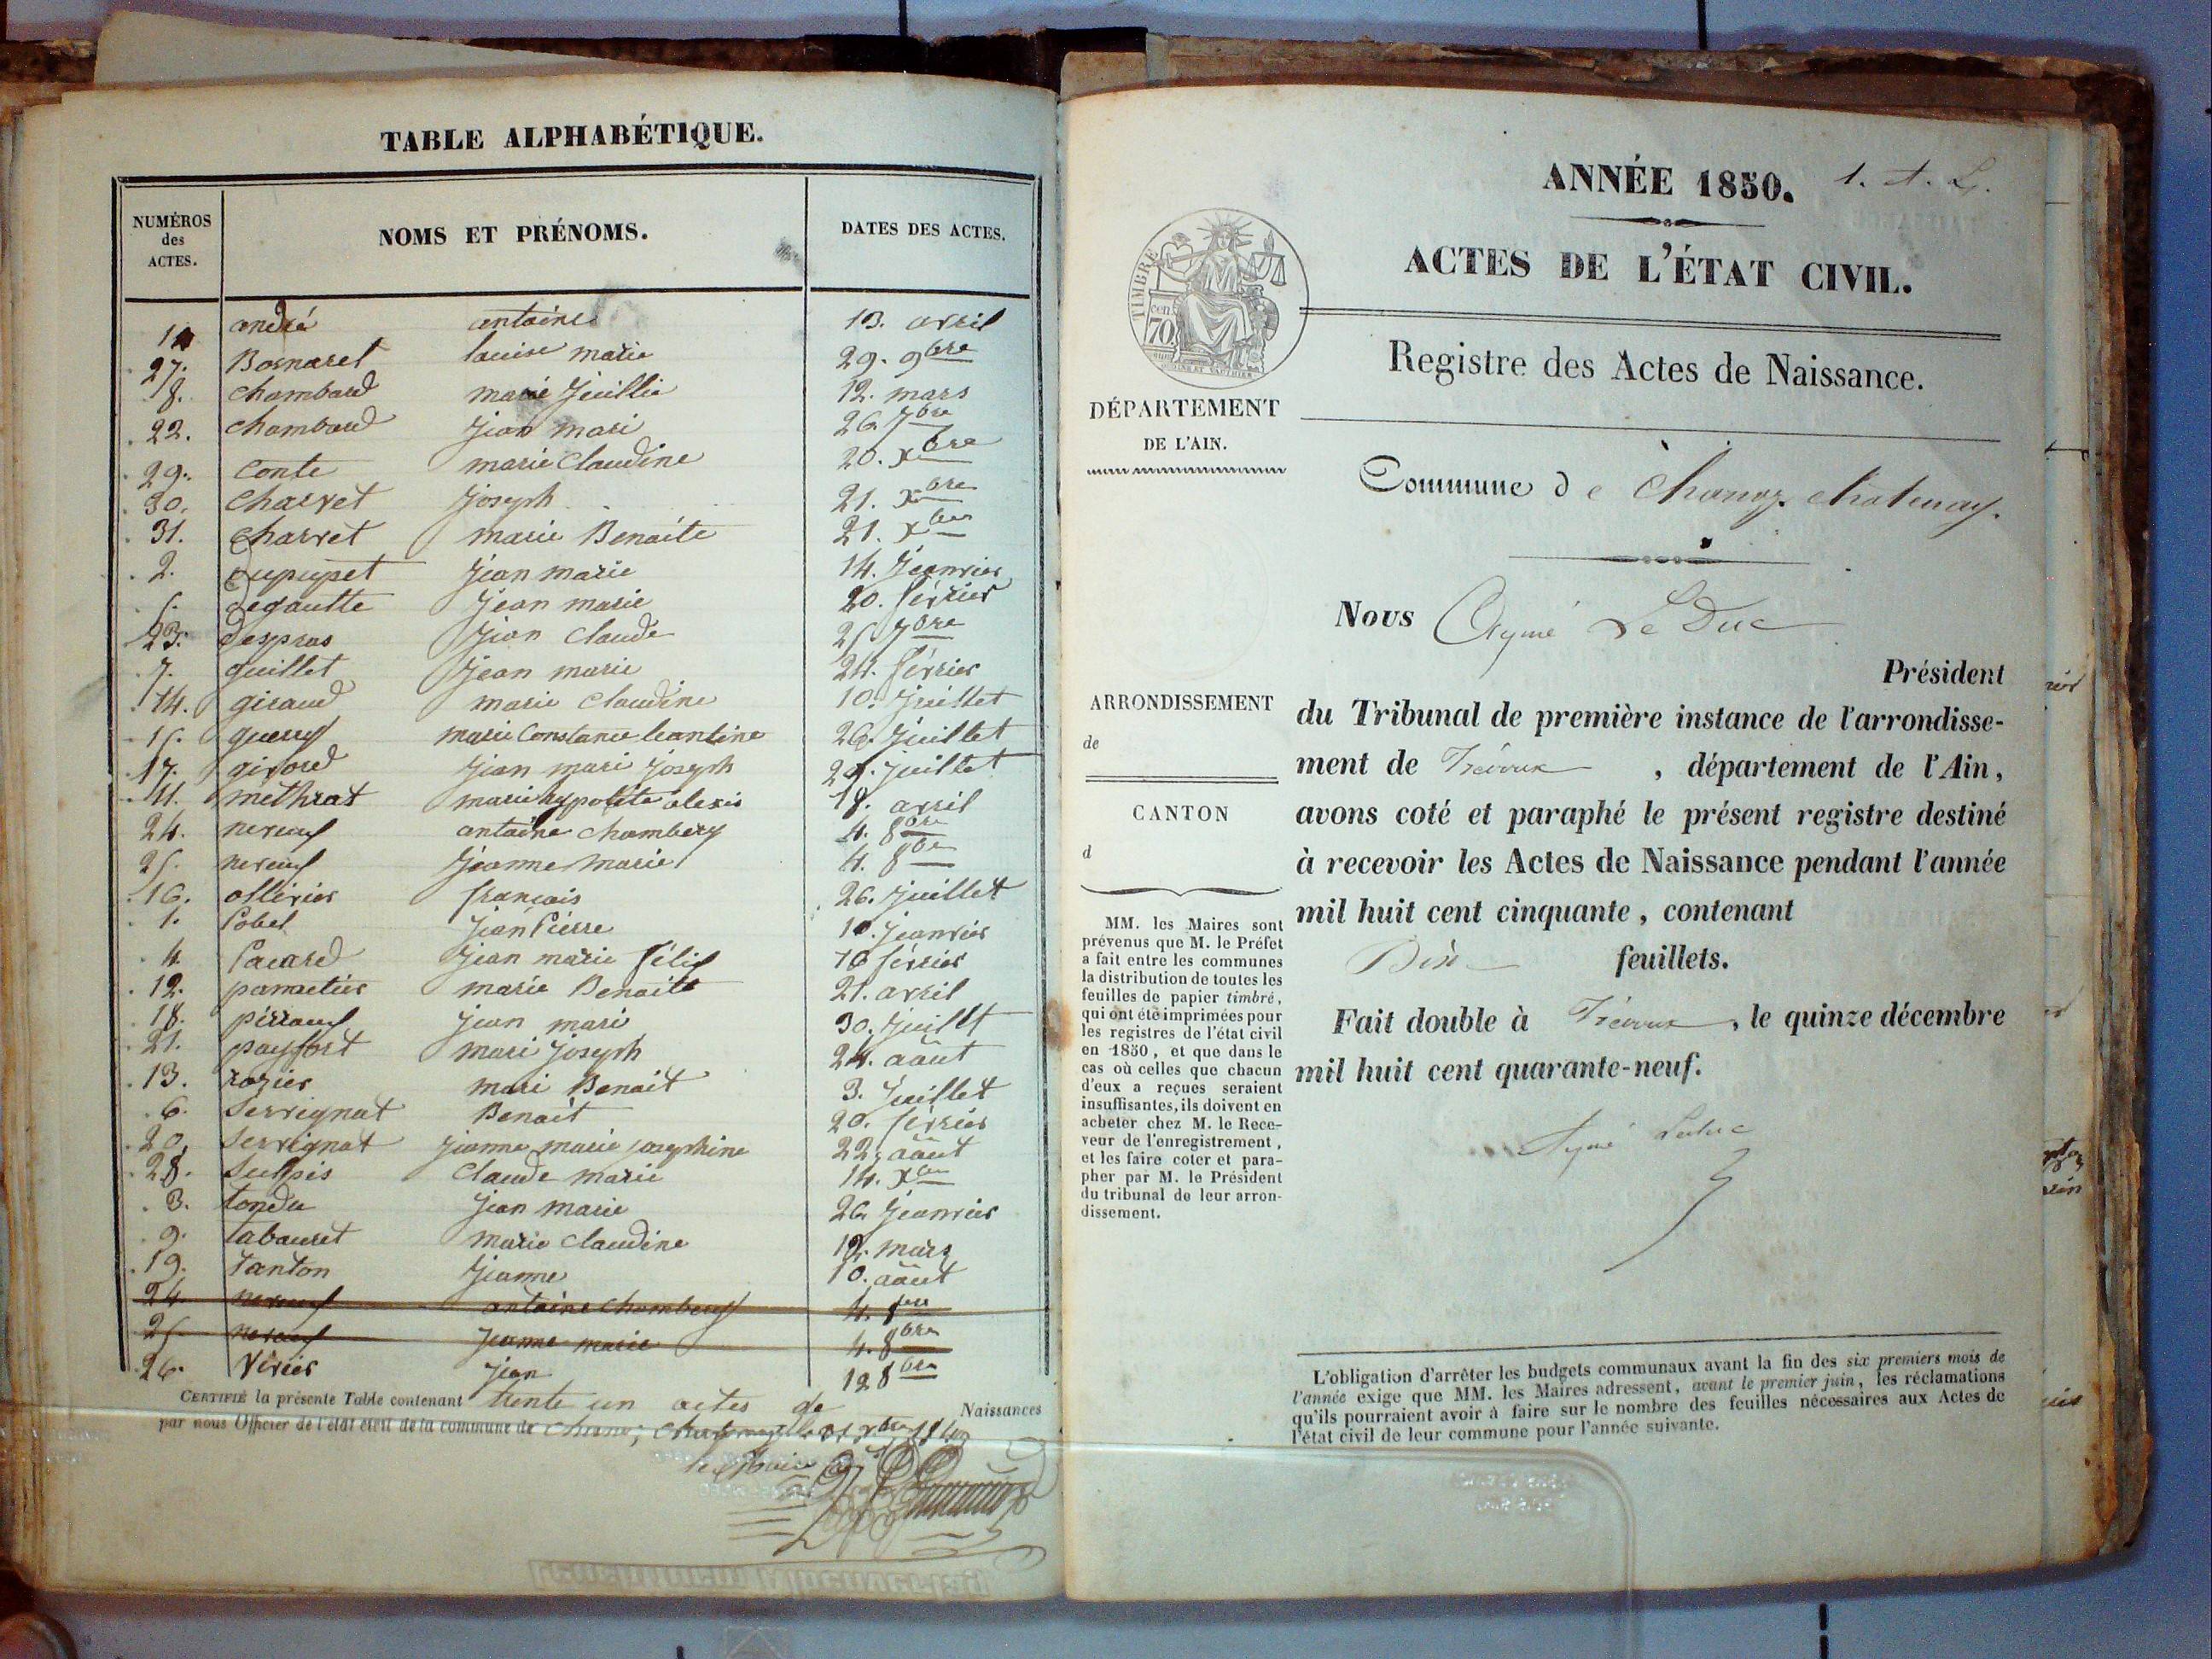 TABLE ALPHABÉTIQUE.
NUMÉROS des ACTES. NOMS ET PRÉNOMS. DATES DES ACTES.
andré antoine 13. avril
27. Bornarel louise marie 29. 9bre
8. chambard marie Jeuillie 12. mars
22. chambard Jean mari 26 7bre
29. Conte marie Claudine 20. xbre
30. Charvet Joseph 21. xbre
31. Charvet marie Benoite 21. xbre
2. dupupet Jean marie 14. Jeanvier
degoutte Jean marie 20. février
23. despras Jean Claude 7bre
7. guillet Jean marie 24. février
14. giraud marie Claudine 10. Juillet
guerry marie Constance leantine 26. Juillet
17. givord Jean mari Joseph Juillet
11. methrat marie hypolite alexis 18. avril
24. neveuf antoine chambery 4. 8bre
25. neveuf Jeanne marie 4. 8bre
16. ollivier françois 26. Juillet
1. Pobel Jean Pierre 10. Jeanvier
4. Pacard Jean marie félix 16 février
12. pametier marie Benoite 21. avril
18. perrauf Jean mari 30. Juillt
21. payfort mari Joseph 24. aâut
13. rozier mari Benoit 3. Juillet
6. Servignat Benoit 20. février
20. Servignat Jeanne marie Josephine 22. aâut
28. Sulpis Claude marie 14. xbre
3. tondu Jean marie 26 Jeanvier
9. tabouret marie Claudine 12. mars
19. tanton Jeanne 10. aâut
24. neveuf antoine chambery 4. 8bre
25. neveuf Jeanne marie 4. 8bre
26. Vérier Jean 12 8bre
CERTIFIÉ la présente Table contenant trente un actes de Naissances
par nous Officier de l'état civil de la commune de
le Maire
ANNÉE 1850.
ACTES DE L'ÉTAT CIVIL.
TIMBRE
70 cent
Registre des Actes de Naissance.
DÉPARTEMENT
DE L'AIN.
Commune de Chanoz-châtenay.
Nous Aymé Le Duc
Président
du Tribunal de première instance de l'arrondisse-
ment de Trévoux, département de l'Ain,
avons coté et paraphé le présent registre destiné
à recevoir les Actes de Naissance pendant l'année
mil huit cent cinquante, contenant
Dix feuillets.
Fait double à Trévoux, le quinze décembre
mil huit cent quarante-neuf.
Aymé Leduc
ARRONDISSEMENT
de
CANTON
d
MM. les Maires sont
prévenus que M. le Préfet
a fait entre les communes
la distribution de toutes les
feuilles de papier timbré,
qui ont été imprimées pour
les registres de l'état civil
en 1850, et que dans le
cas où celles que chacun
d'eux a reçues seraient
insuffisantes, ils doivent en
acheter chez M. le Rece-
veur de l'enregistrement,
et les faire coter et para-
pher par M. le Président
du tribunal de leur arron-
dissement.
L'obligation d'arrêter les budgets communaux avant la fin des six premiers mois de
l'année exige que MM. les Maires adressent, avant le premier juin, les réclamations
qu'ils pourraient avoir à faire sur le nombre des feuilles nécessaires aux Actes de
l'état civil de leur commune pour l'année suivante.